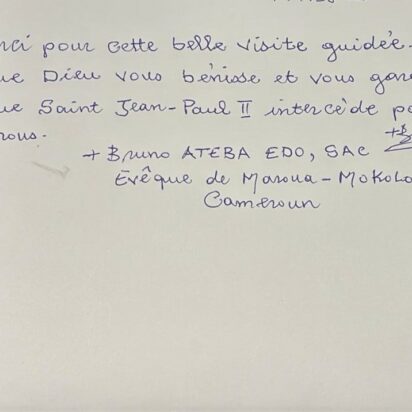 pour cette belle visite guidée.
Dieu vous bénisse et vous
Saint Jean-Paul II intercède
+ Bruno ATEBA EDO, SAC
Evêque de Maroua-Mokolo
Cameroun